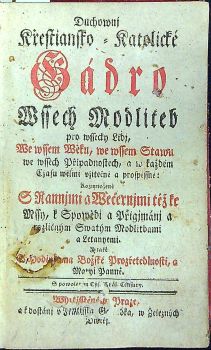 Duchownj
Křestiansko-Katolické
Gádro
Wssech Modliteb
pro wssecky Lidj,
We wssem Wěku, we wssem Stawu
we wssech Připadnostech, a w každém
Času welmi vžitečné a prospěssné:
Rozmnožené
S Rannjmi a Wečernjmi též ke
Mssy, k Spowědi a Přigjmánj a
rozličnými Swatými Modlitbami
a Letanyemi.
k Božské Prozřetedlnosti, a
Marygi Panně.
S powolenjm Cýs. Král. Censury.
Wytisstěné w Praze,
a k dostánj v w Železných